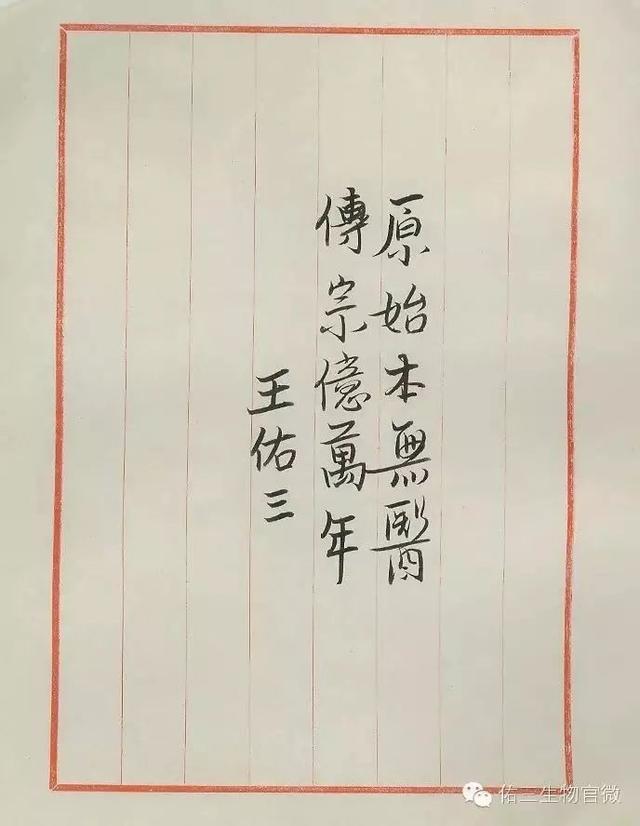 原始本無醫
傳宗億萬年
王佑三
佑三生物官微